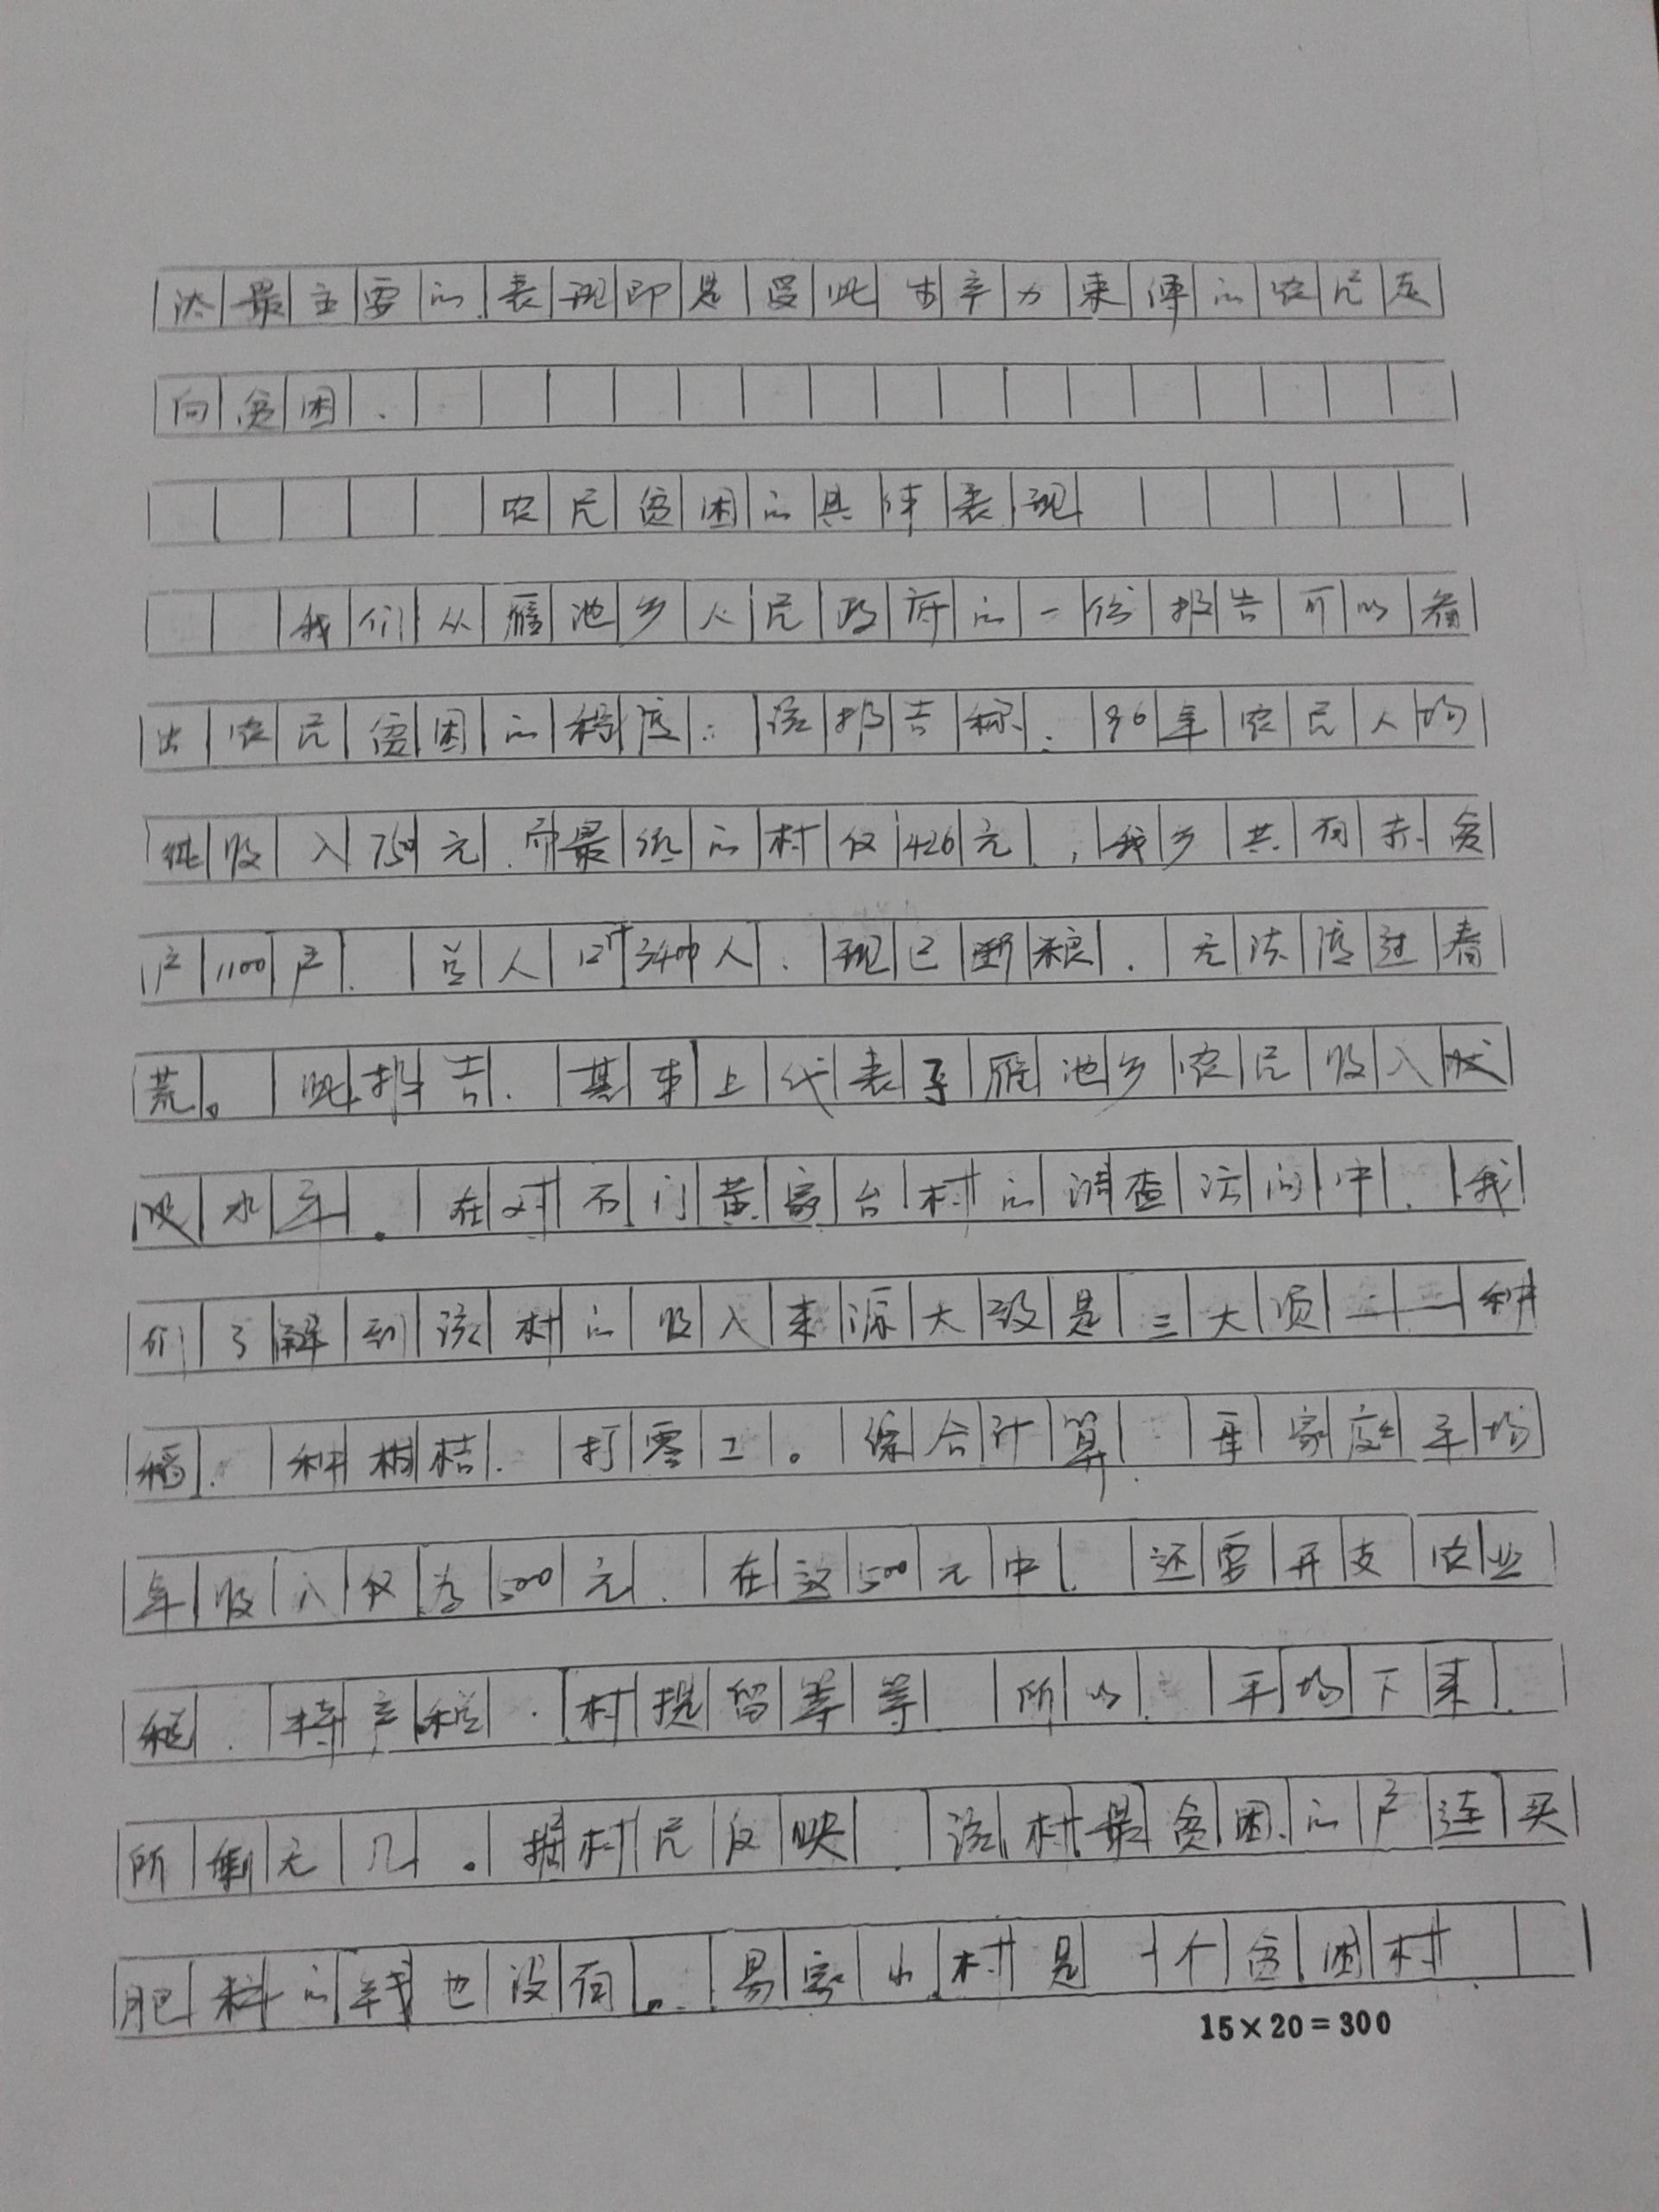 汰最主要的表现即是受此生产力束缚的农民走
向贫困.
农民贫困的具体表现
我们从雁池乡人民政府的一份报告可以看
出农民贫困的程度:该报告称.96年农民人均
纯收入750元.而最低的村仅426元.,我乡共有赤贫
户1100户.总人口3400人.现已断粮.无法度过春
荒。此报告.基本上代表了雁池乡农民收入状
况水平。在对石门黄家台村的调查访问中.我
们了解到该村的收入来源大致是三大项——种
稻.种柑桔.打零工。综合计算.每家庭平均
年收入仅为500元.在这500元中.还要开支农业
税.特产税.村提留等等 所以.平均下来.
所剩无几。据村民反映.该村最贫困的户连买
肥料的钱也没有。易家山村是一个贫困村.
15×20=300